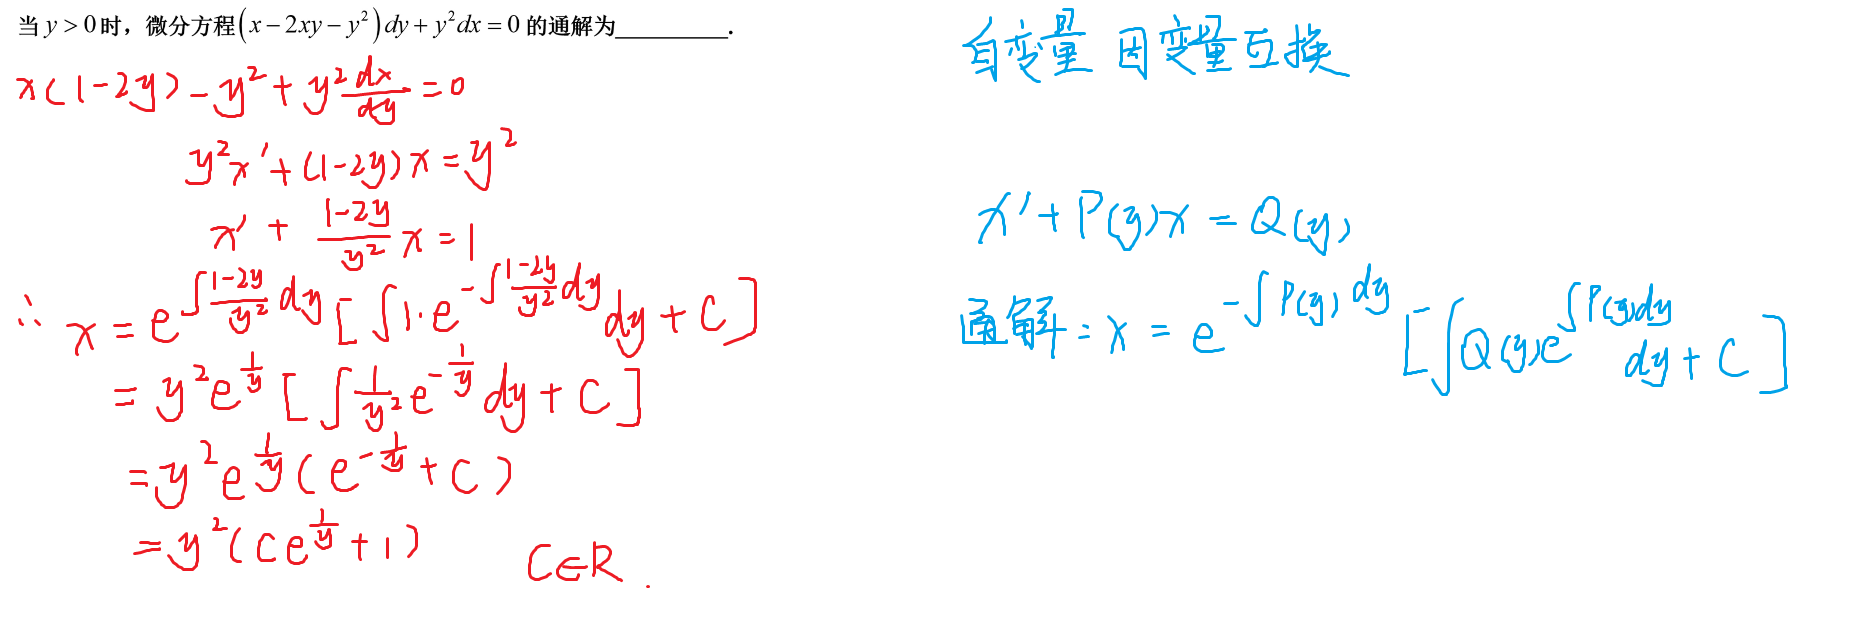 当 y > 0 时，微分方程 (x − 2xy − y²) dy + y² dx = 0 的通解为__________.
x(1-2y) - y² + y² dx/dy = 0
y²x' + (1-2y)x = y²
x' + (1-2y)/y² x = 1
∴ x = e^{∫(1-2y)/y² dy} [∫1·e^{-∫(1-2y)/y² dy} dy + C]
= y² e^{1/y} [∫ 1/y² e^{-1/y} dy + C]
= y² e^{1/y} (e^{-1/y} + C)
= y² (C e^{1/y} + 1)    C∈R.
自变量 因变量互换
x' + P(y)x = Q(y)
通解: x = e^{-∫P(y)dy} [∫Q(y)e^{∫P(y)dy} dy + C]